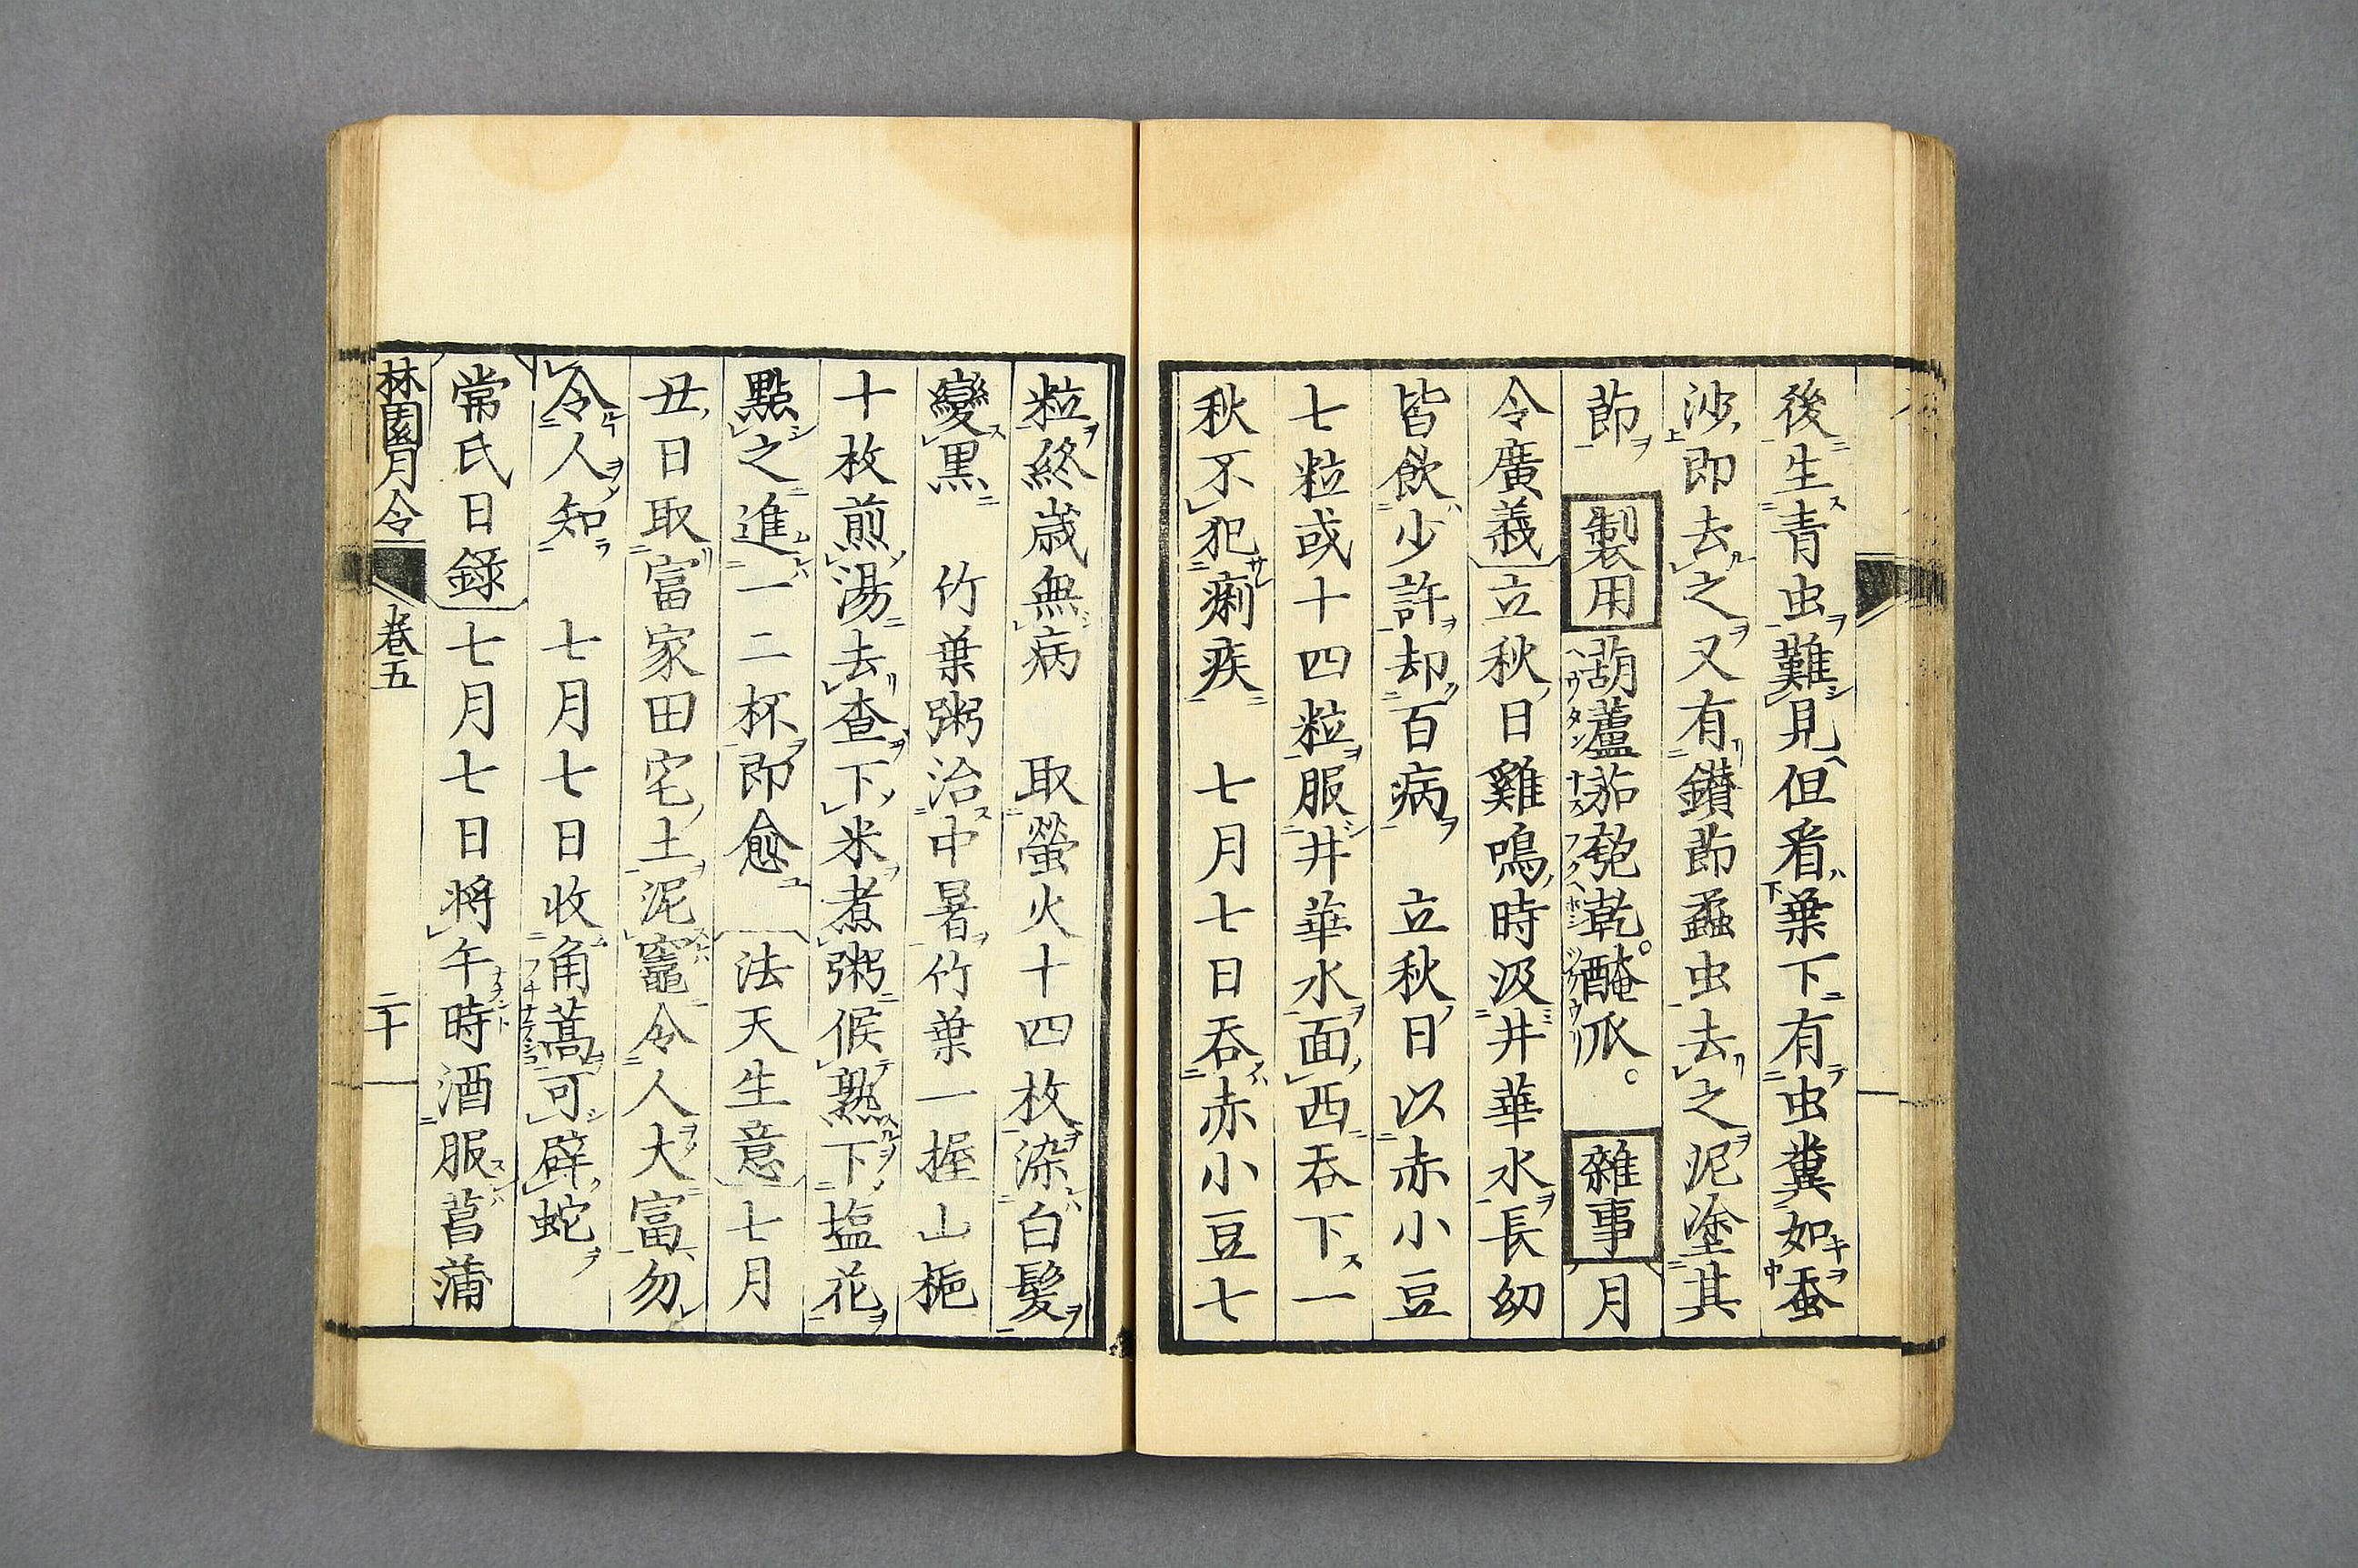 後生青虫難見但看葉下有虫糞如蚕
沙即去之又有鑚莭蟊虫去之泥塗其
莭 製用 葫蘆茄匏乾醃瓜 雜事 月
令廣義立秋日雞鳴時汲井華水長幼
皆飲少許却百病 立秋日以赤小豆
七粒或十四粒服井華水面西吞下一
秋不犯痢疾 七月七日吞赤小豆七
粒終歳無病 取螢火十四枚染白髮
變黒 竹葉粥治中暑竹葉一握山梔
十枚煎湯去査下米煮粥候熟下塩花
點之進一二杯即愈 法天生意七月
丑日取富家田宅土泥竈令人大富勿
令人知 七月七日收角蒿可辟蛇
常氏日録七月七日将午時酒服菖蒲
林園月令 巻五 二十